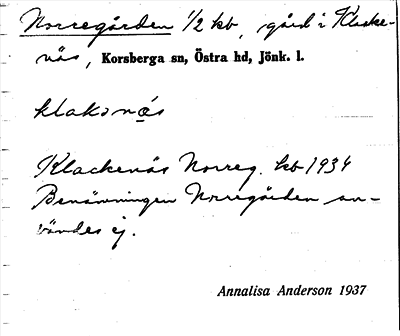 Norregården 1/2 kb, gård i Klacke-
näs, Korsberga sn, Östra hd, Jönk. l.
klakənäs
Klackenäs Norreg. kb 1934
Benämningen Norregården an-
vändes ej.
Annalisa Anderson 1937